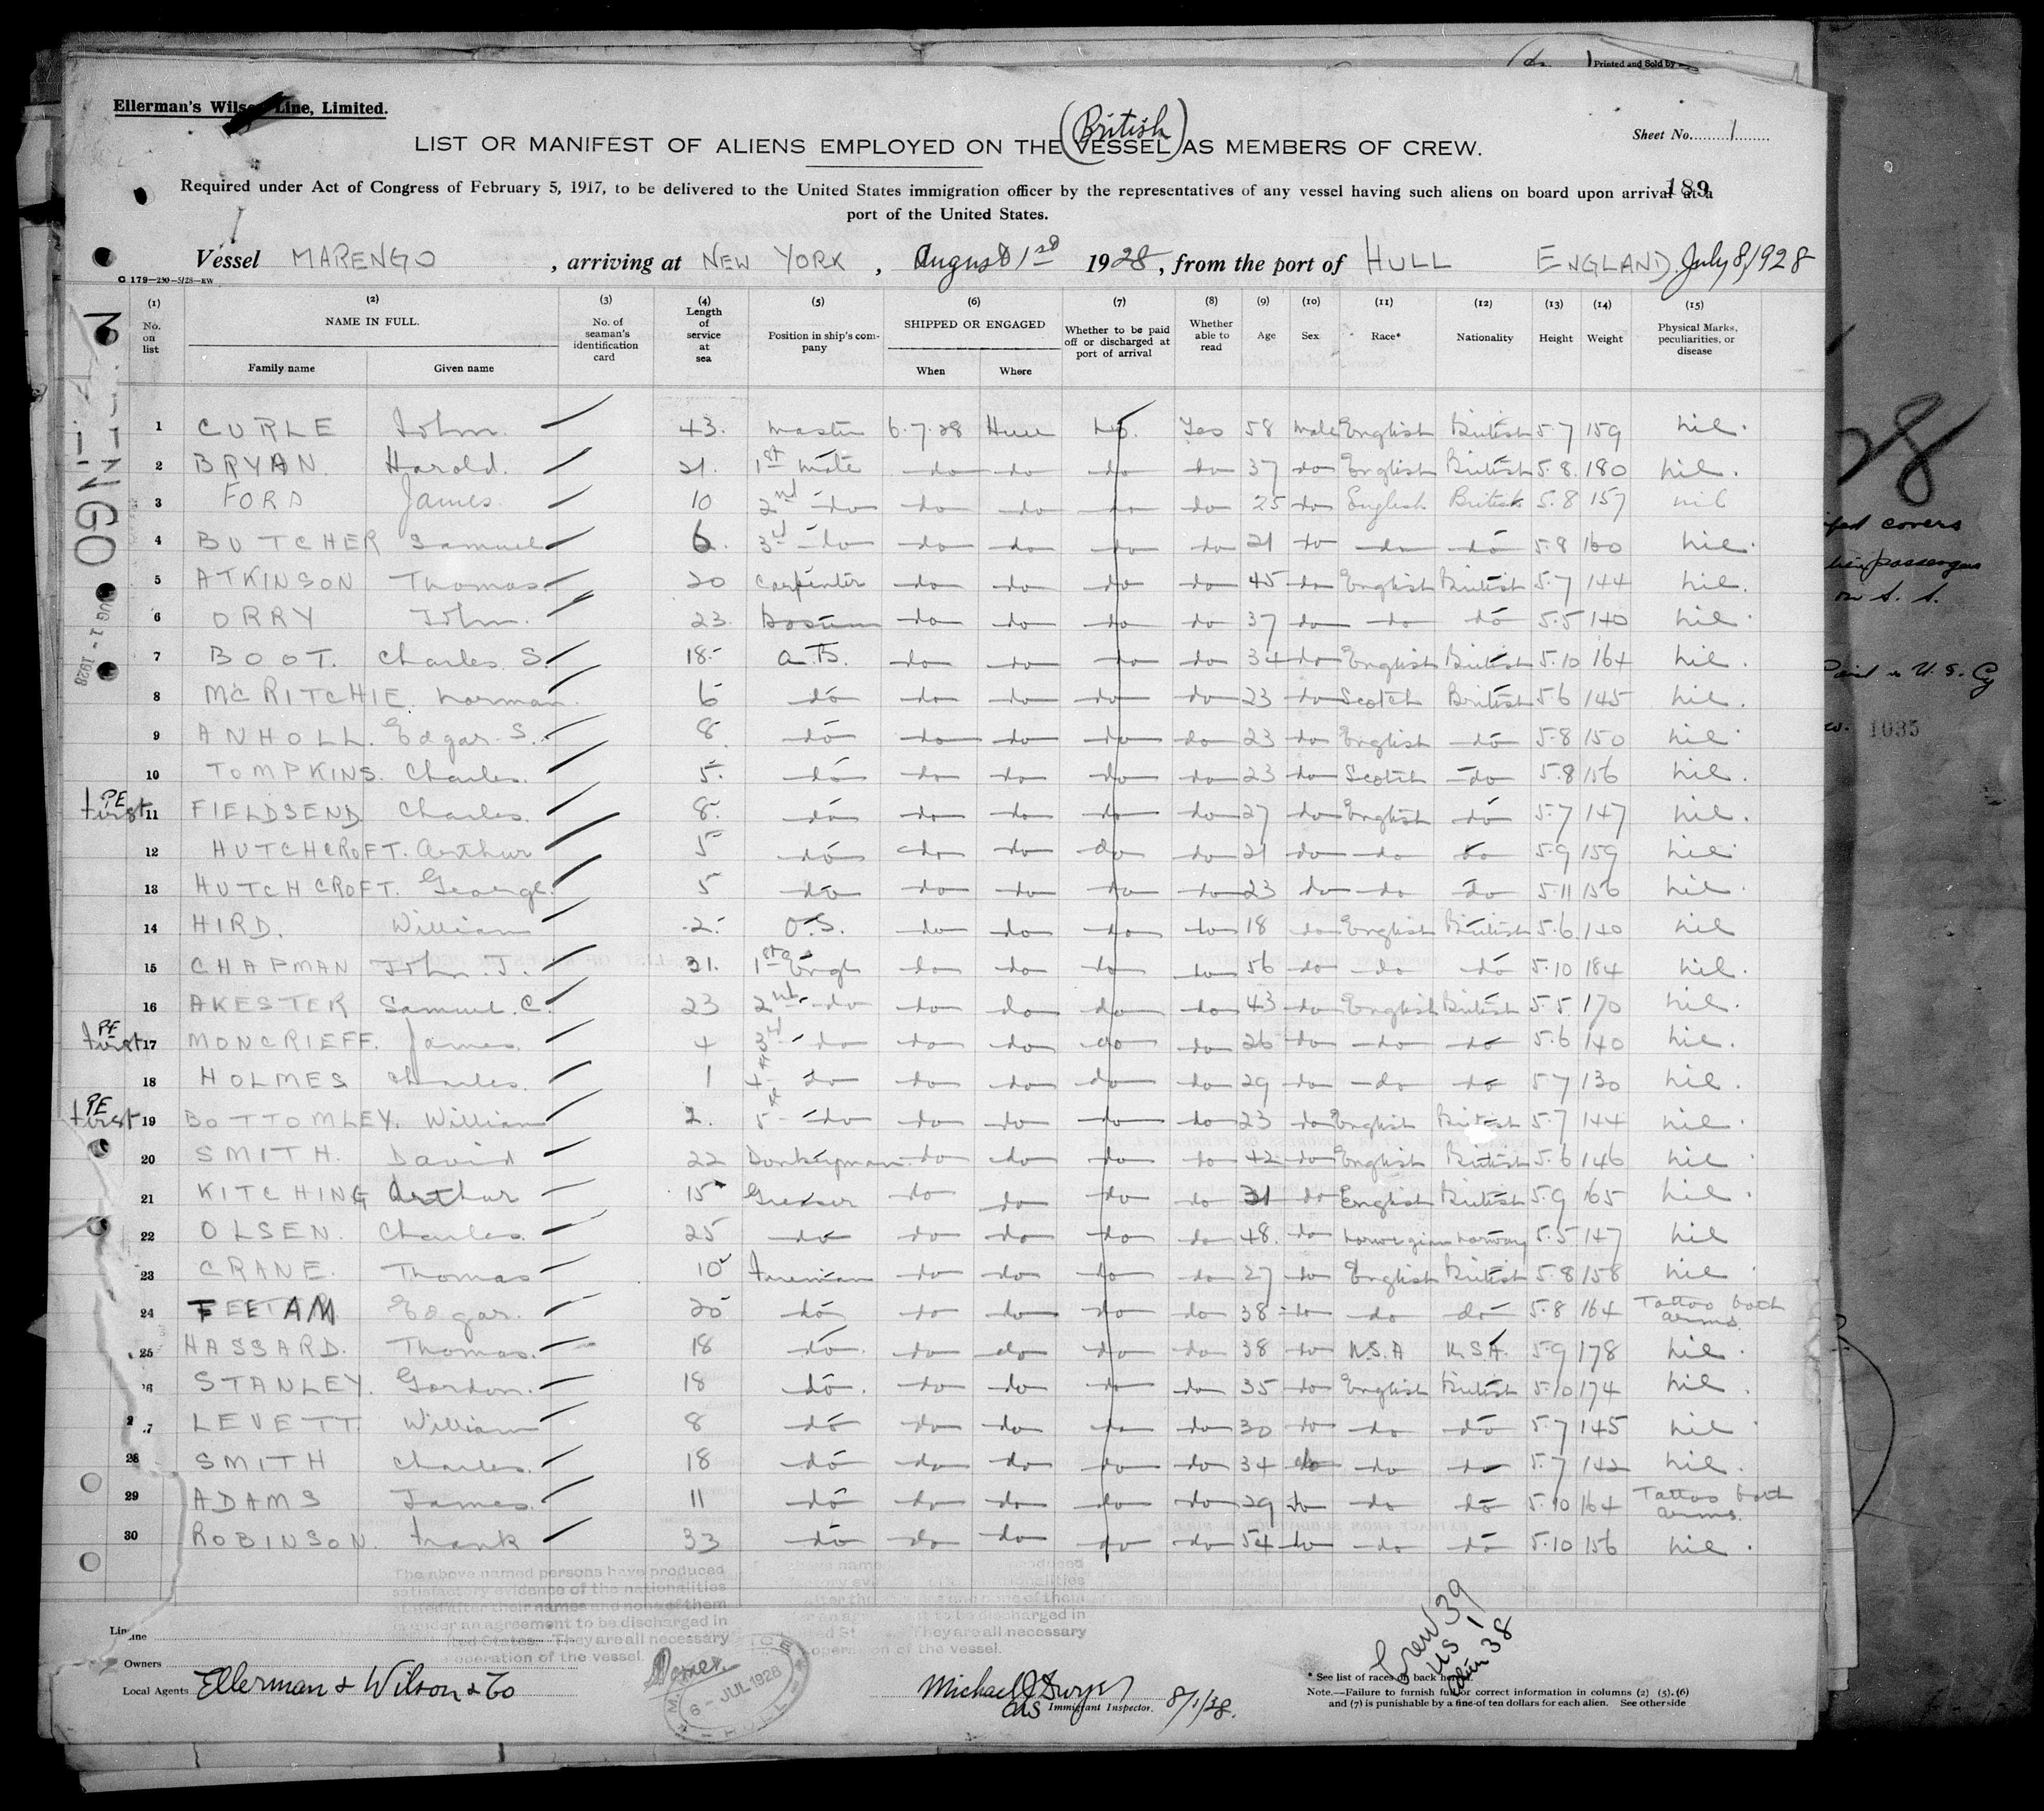 Printed and Sold by
Ellerman's Wilson Line, Limited.
(British)
Sheet No. 1
LIST OR MANIFEST OF ALIENS EMPLOYED ON THE VESSEL AS MEMBERS OF CREW.
Required under Act of Congress of February 5, 1917, to be delivered to the United States immigration officer by the representatives of any vessel having such aliens on board upon arrival at a
189
port of the United States.
Vessel MARENGO, arriving at NEW YORK, August 1st 1928, from the port of HULL ENGLAND. July 8, 1928
G 179-250-5/28-RW
(1) (2) (3) (4) (5) (6) (7) (8) (9) (10) (11) (12) (13) (14) (15)
No. on list NAME IN FULL. No. of seaman's identification card Length of service at sea Position in ship's company SHIPPED OR ENGAGED Whether to be paid off or discharged at port of arrival Whether able to read Age Sex Race* Nationality Height Weight Physical Marks, peculiarities, or disease
Family name Given name When Where
1 CURLE John. 43. Master 6.7.28 Hull No. Yes 58 Male English British 5.7 159 Nil.
2 BRYAN. Harold. 21. 1st Mate do do do do 37 do English British 5.8. 180 Nil.
3 FORD James. 10 2nd do do do do do 25 do English British 5.8 157 Nil
4 BUTCHER Samuel 6. 3rd do do do do do 21 do do do 5.9 160 Nil.
5 ATKINSON Thomas. 20 Carpenter do do do do 45 do English British 5.7 144 Nil.
6 ORRY John. 23. Bosun do do do do 37 do do do 5.5 140 Nil.
7 BOOT. Charles S. 18 A.B. do do do do 34 do English British 5.10 164 Nil.
8 McRITCHIE Norman. 6 do do do do do 23 do Scotch British 5.6 145 Nil.
9 ANHOLL. Edgar. S. 8. do do do do do 23 do English do 5.8 150 Nil
10 TOMPKINS. Charles. 5. do do do do do 23 do Scotch do 5.8 156 Nil.
PE first 11 FIELDSEND Charles. 8. do do do do do 27 do English do 5.7 147 Nil.
12 HUTCHCROFT. Arthur 5 do do do do do 21 do do do 5.9 159 Nil
13 HUTCHCROFT. George. 5 do do do do do 23 do do do 5.11 156 Nil.
14 HIRD. William 2. O.S. do do do do 18 do English British 5.6. 140 Nil
15 CHAPMAN John. J. 31. 1st Eng do do do do 56 do do do 5.10 184 Nil.
16 AKESTER Samuel. C. 23 2nd do do do do do 43 do English British 5.5. 170 Nil.
PE first 17 MONCRIEFF. James. 4 3rd do do do do do 26 do do do 5.6 140 Nil.
18 HOLMES Charles. 1 4th do do do do do 29 do do do 5.7 130 Nil.
PE first 19 BOTTOMLEY. William 2. 5th do do do do do 23 do English British 5.7 144 Nil.
20 SMITH. David 22 Donkeyman. do do do do 42 do English British 5.6 146 Nil
21 KITCHING Arthur 15 Greaser do do do do 31 do English British 5.9 165 Nil.
22 OLSEN. Charles. 25 do do do do do 48. do Norwegian Norway 5.5 147 Nil
23 CRANE. Thomas 10 Fireman do do do do 27 do English British 5.8 158 Nil
24 FEETAM Edgar. 20 do do do do do 38 do do do 5.8 164 Tattoo both arms.
25 HASSARD. Thomas. 18 do. do do do do 38 do U.S.A U.S.A. 5.9 178 Nil.
26 STANLEY. Gordon. 18 do. do do do do 35 do English British 5.10 174 Nil.
27 LEVETT. William 8 do do do do do 30 do do do 5.7 145 Nil
28 SMITH Charles. 18 do do do do do 34 do do do 5.7 142 Nil.
29 ADAMS James. 11 do do do do do 29 do do do 5.10 164 Tattoo both arms.
30 ROBINSON. Frank 33 do do do do do 54 do do do 5.10 156 Nil.
The above named persons have produced
satisfactory evidence of the nationalities
stated after their names and none of them
under an agreement to be discharged in
United States. They are all necessary
operation of the vessel.
Crew 39
US 1
Alien 38
Line
Owners
Local Agents Ellerman & Wilson & Co
6 JUL 1928
HULL
Michael J Dwyer
Immigrant Inspector. 8/1/28.
* See list of races on back hereof.
Note.—Failure to furnish full or correct information in columns (2) (5), (6)
and (7) is punishable by a fine of ten dollars for each alien. See otherside
AUG 1 - 1928
28
covers
passengers
on S. S.
Paid in U. S. Cy
1035